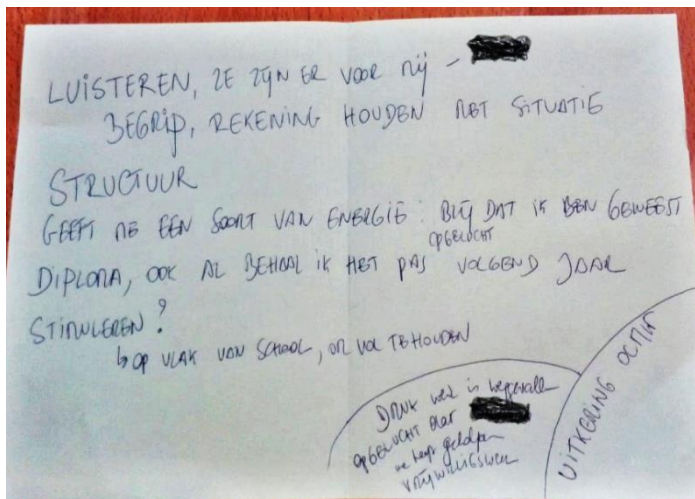 LUISTEREN, ZE ZIJN ER VOOR MIJ -
BEGRIP, REKENING HOUDEN MET SITUATIE
STRUCTUUR
GEEFT ME EEN SOORT VAN ENERGIE : BLIJ DAT IK BEN GEWEEST
OPGELUCHT
DIPLOMA, OOK AL BEHAAL IK HET PAS VOLGEND JAAR
STIMULEREN ?
↳ OP VLAK VAN SCHOOL, OM VOL TE HOUDEN
DRUK is weggevallen
OPGELUCHT DAT
me geholpen
VRIJWILLIGSWERK
UITKERING OCMW